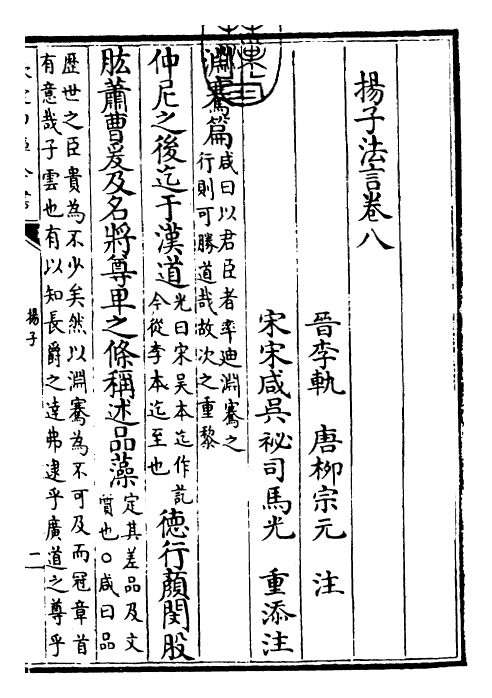 揚子法言卷八
晉李軌　唐柳宗元　注
宋宋咸吳祕司馬光　重添注
淵騫篇咸曰以君臣者率迪淵騫之行則可勝道哉故次之重黎
仲尼之後迄于漢道光曰宋吳本迄作訖今從李本迄至也德行顏閔股
肱蕭曹爰及名將尊卑之條稱述品藻定其差品及文質也○咸曰品
歷世之臣貴為不少矣然以淵騫為不可及而冠章首
有意哉子雲也有以知長爵之達弗逮乎廣道之尊乎
揚子
二